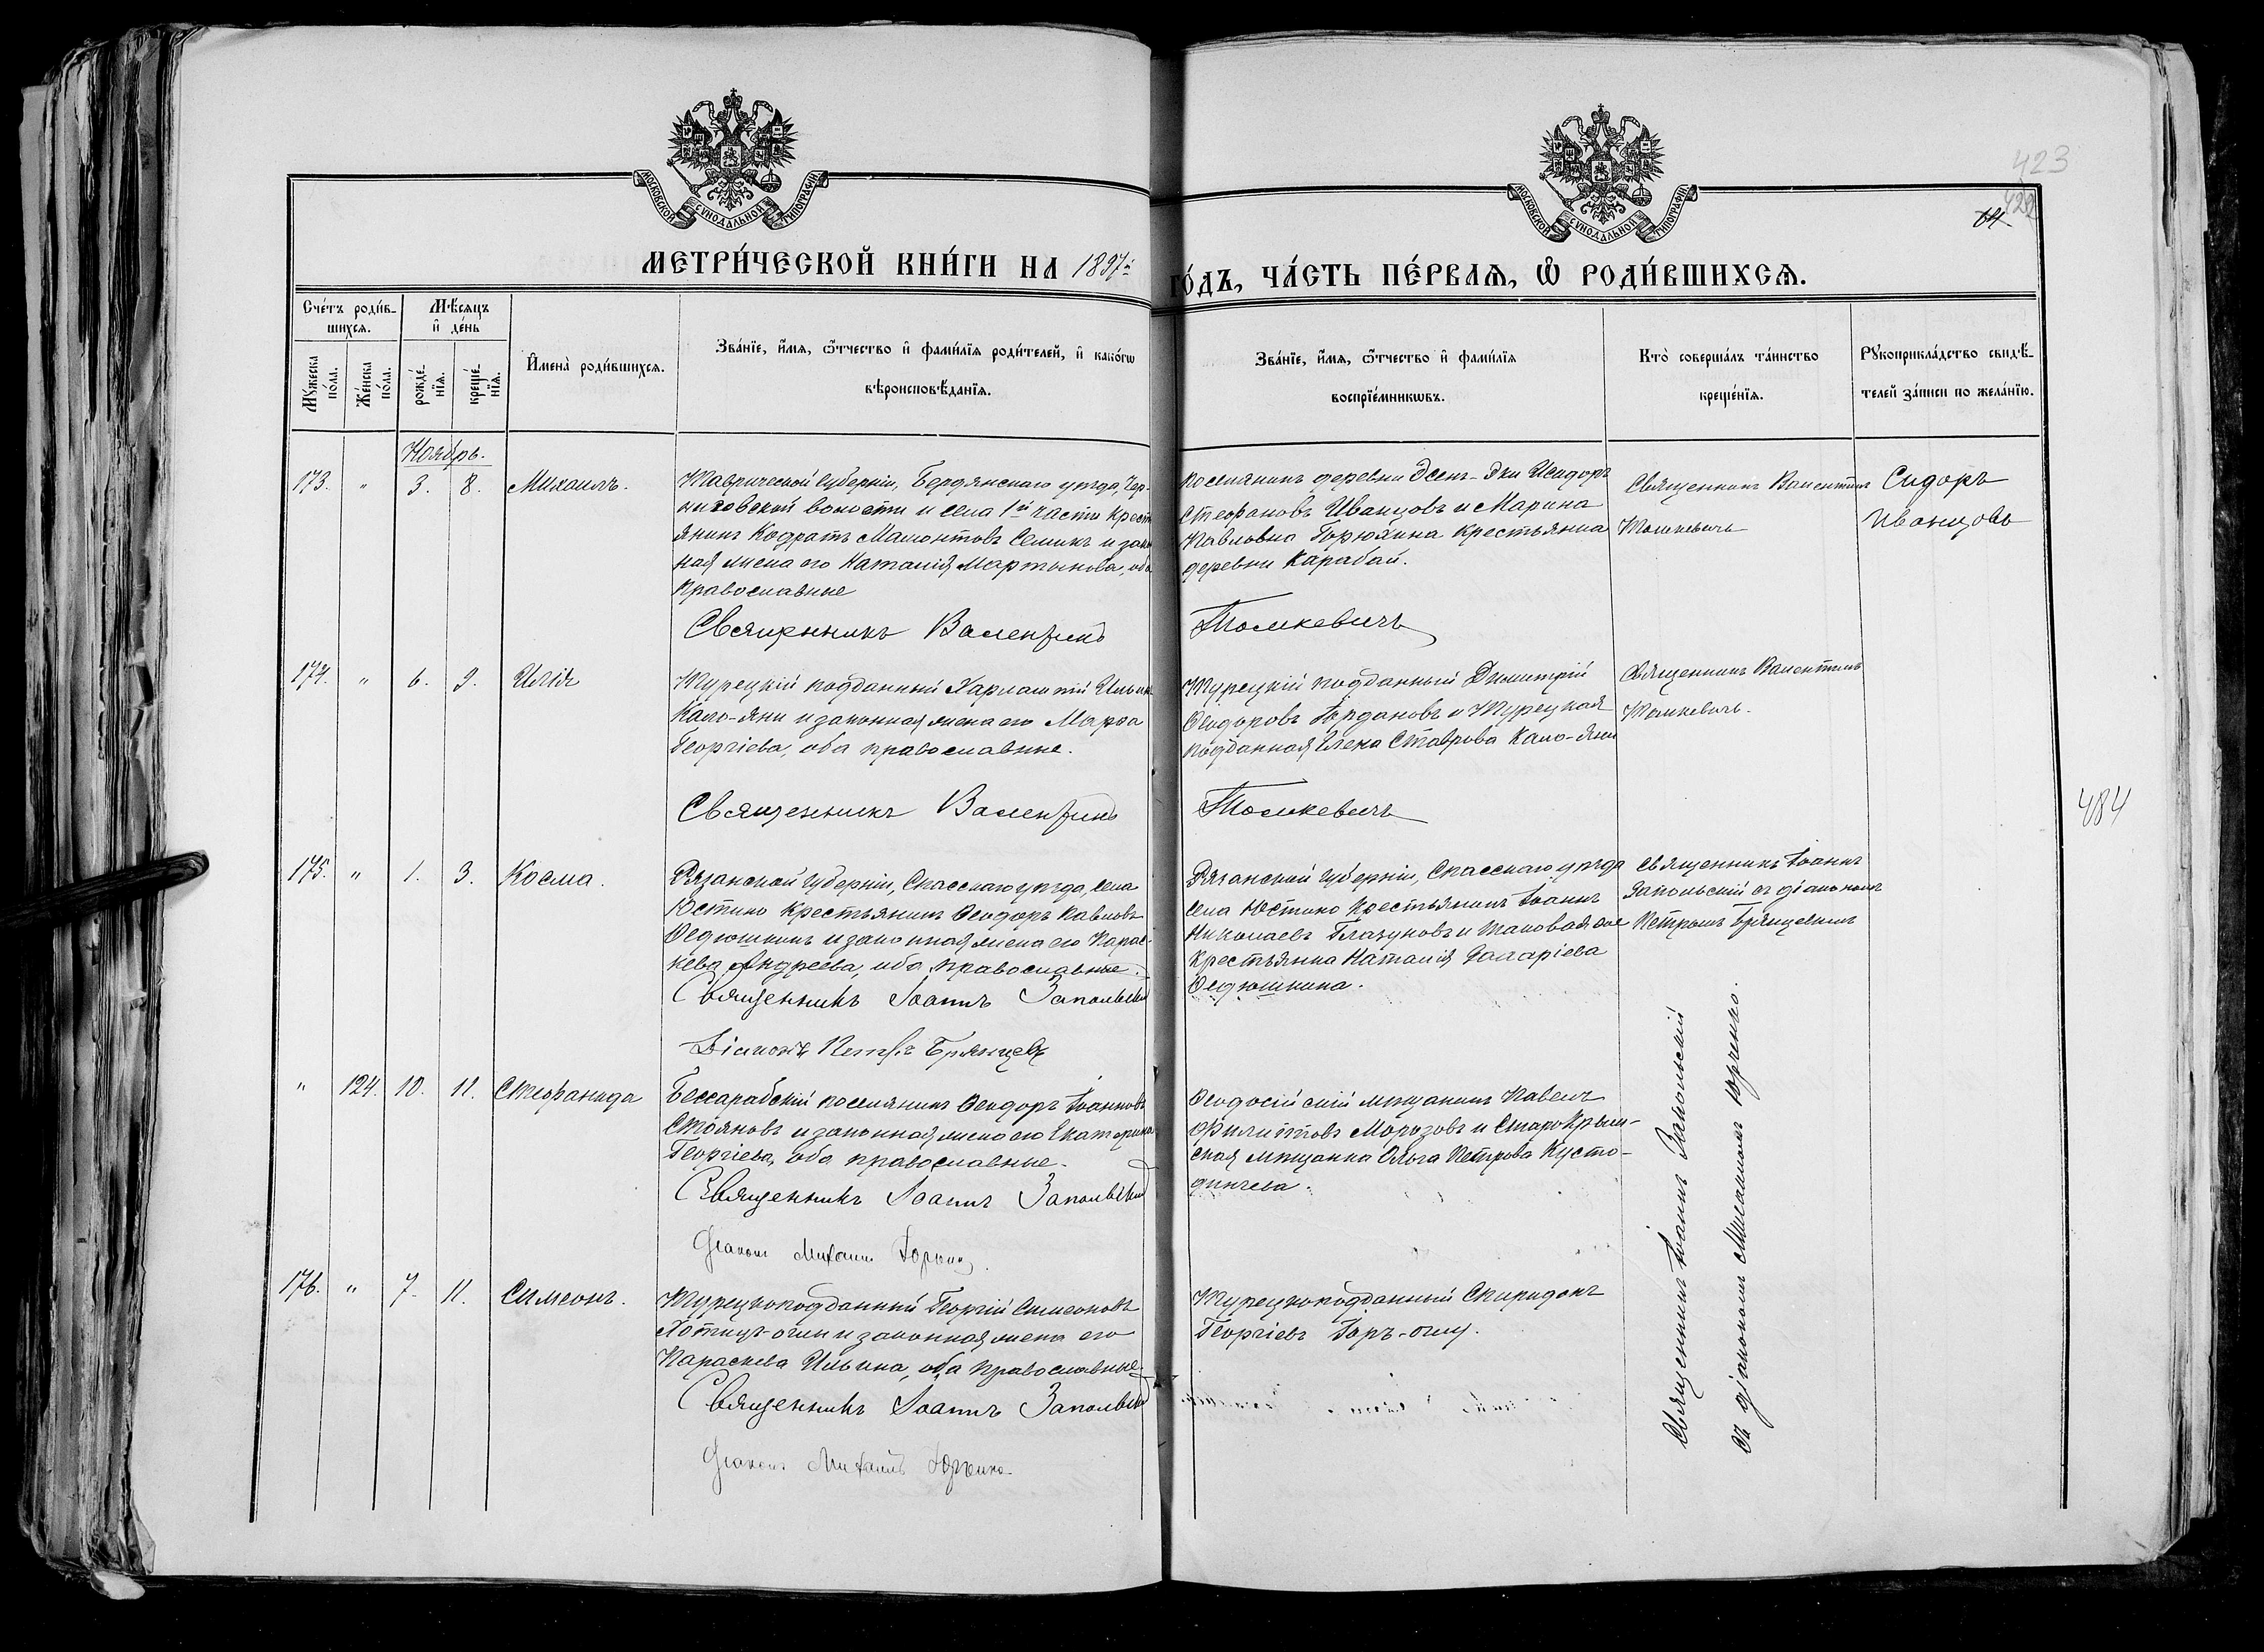 423
422
64
МОСКОВСКОЙ СѴНОДАЛЬНОЙ ТИПОГРАФІИ
МОСКОВСКОЙ СѴНОДАЛЬНОЙ ТИПОГРАФІИ
МЕТРИ́ЧЕСКОЙ КНИ́ГИ НА 1897й ГО́ДЪ, ЧА́СТЬ ПЕ́РВАѦ, Ѡ҆ РОДИ́ВШИХСѦ.
Сче́тъ роди́в-
шихсѧ.
Мꙋ́жеска по́ла.
Же́нска по́ла.
Мѣ́сѧцъ
и҆ де́нь
рожде́-
нїѧ.
креще́-
нїѧ.
И҆мена̀ роди́вшихсѧ.
Зва́нїе, и҆́мѧ, ѻ҆́тчество и҆ фами́лїѧ роди́телей, и҆ како́гѡ
вѣроисповѣ́данїѧ.
Зва́нїе, и҆́мѧ, ѻ҆́тчество и҆ фами́лїѧ
воспрїе́мникѡвъ.
Кто̀ соверша́лъ та́инство
креще́нїѧ.
Рꙋкоприкла́дство свидѣ́-
телей за́писи по жела́нїю.
Ноябрь.
173. " 3. 8. Михаилъ.
Таврической Губерніи, Бердянскаго уѣзда, Чер-
ниговской волости и села 1й части крест
янинъ Кодратъ Мамонтовъ Семикъ и закон
ная жена его Наталія Мартынова, оба
православные
Священникъ Валентинъ Томкевичъ
поселянинъ деревни Эсень-Эки Исидоръ
Стефановъ Иванцовъ и Марина
Павловна Горюхина крестьянка
деревни Карабай.
Священникъ Валентинъ
Томкевичъ
Сидоръ
Иванцовъ
174. " 6. 9. Илія
Турецкій подданный Харлампій Ильинъ
Кало-яни и законная жена его Марфа
Георгіева, оба православные.
Священникъ Валентинъ Томкевичъ
Турецкій подданный Димитрій
Ѳеодоровъ Іордановъ и Турецкая
подданная Елена Ставрова Кало-яни
Священникъ Валентинъ
Томкевичъ.
484
175. " 1. 3. Косма.
Рязанской Губерніи, Спасскаго уѣзда, села
Юстино крестьянинъ Ѳеодоръ Павловъ
Ѳедюшкинъ и законная жена его Парас-
кева Андреева, оба православные.
Священникъ Іоаннъ Запольскій
Діаконъ Петръ Брянцевъ
Рязанской Губерніи, Спасскаго уѣзда
села Юстино крестьянинъ Іоаннъ
Николаевъ Глазуновъ и таковая же
крестьянка Наталія
Ѳедюшкина.
Священникъ Іоаннъ
Запольскій съ діакономъ
Петромъ Брянцевымъ
" 124. 10. 11. Стефанида
Бессарабскій поселянинъ Ѳеодоръ Іоанновъ
Стояновъ и законная жена его Екатерина
Георгіева, оба православные.
Священникъ Іоаннъ Запольскій
Діаконъ Михаилъ Юрченко.
Ѳеодосійскій мѣщанинъ Павелъ
Филипповъ Морозовъ и Старо-Крым-
ская мѣщанка Ольга Петрова Кусто-
динчева.
Священникъ Іоаннъ Запольскій
съ діакономъ Михаиломъ Юрченко.
176. " 7. 11. Симеонъ.
Турецкоподданный Георгій Симеоновъ
и законная жена его
Параскева Ильина, оба православные
Священникъ Іоаннъ Запольскій
Діаконъ Михаилъ Юрченко
Турецкоподданный Спиридонъ
Георгіевъ